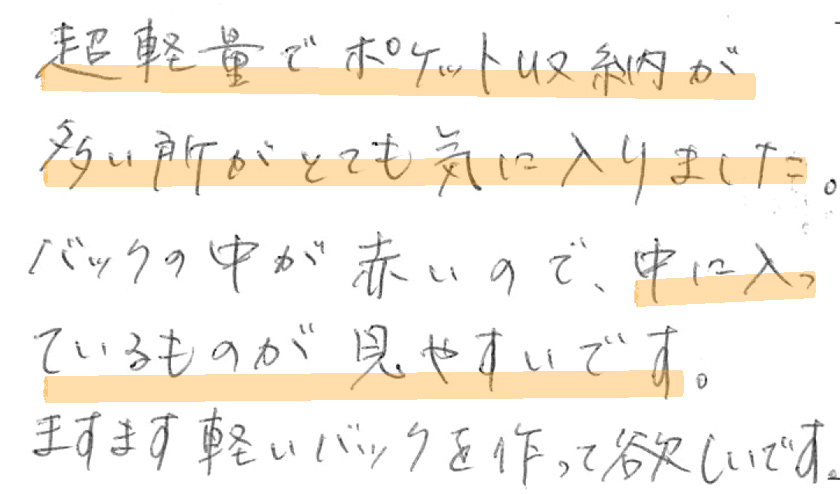 超軽量でポケット収納が
多い所がとても気に入りました。
バックの中が赤いので、中に入っ
ているものが見やすいです。
ますます軽いバックを作って欲しいです。